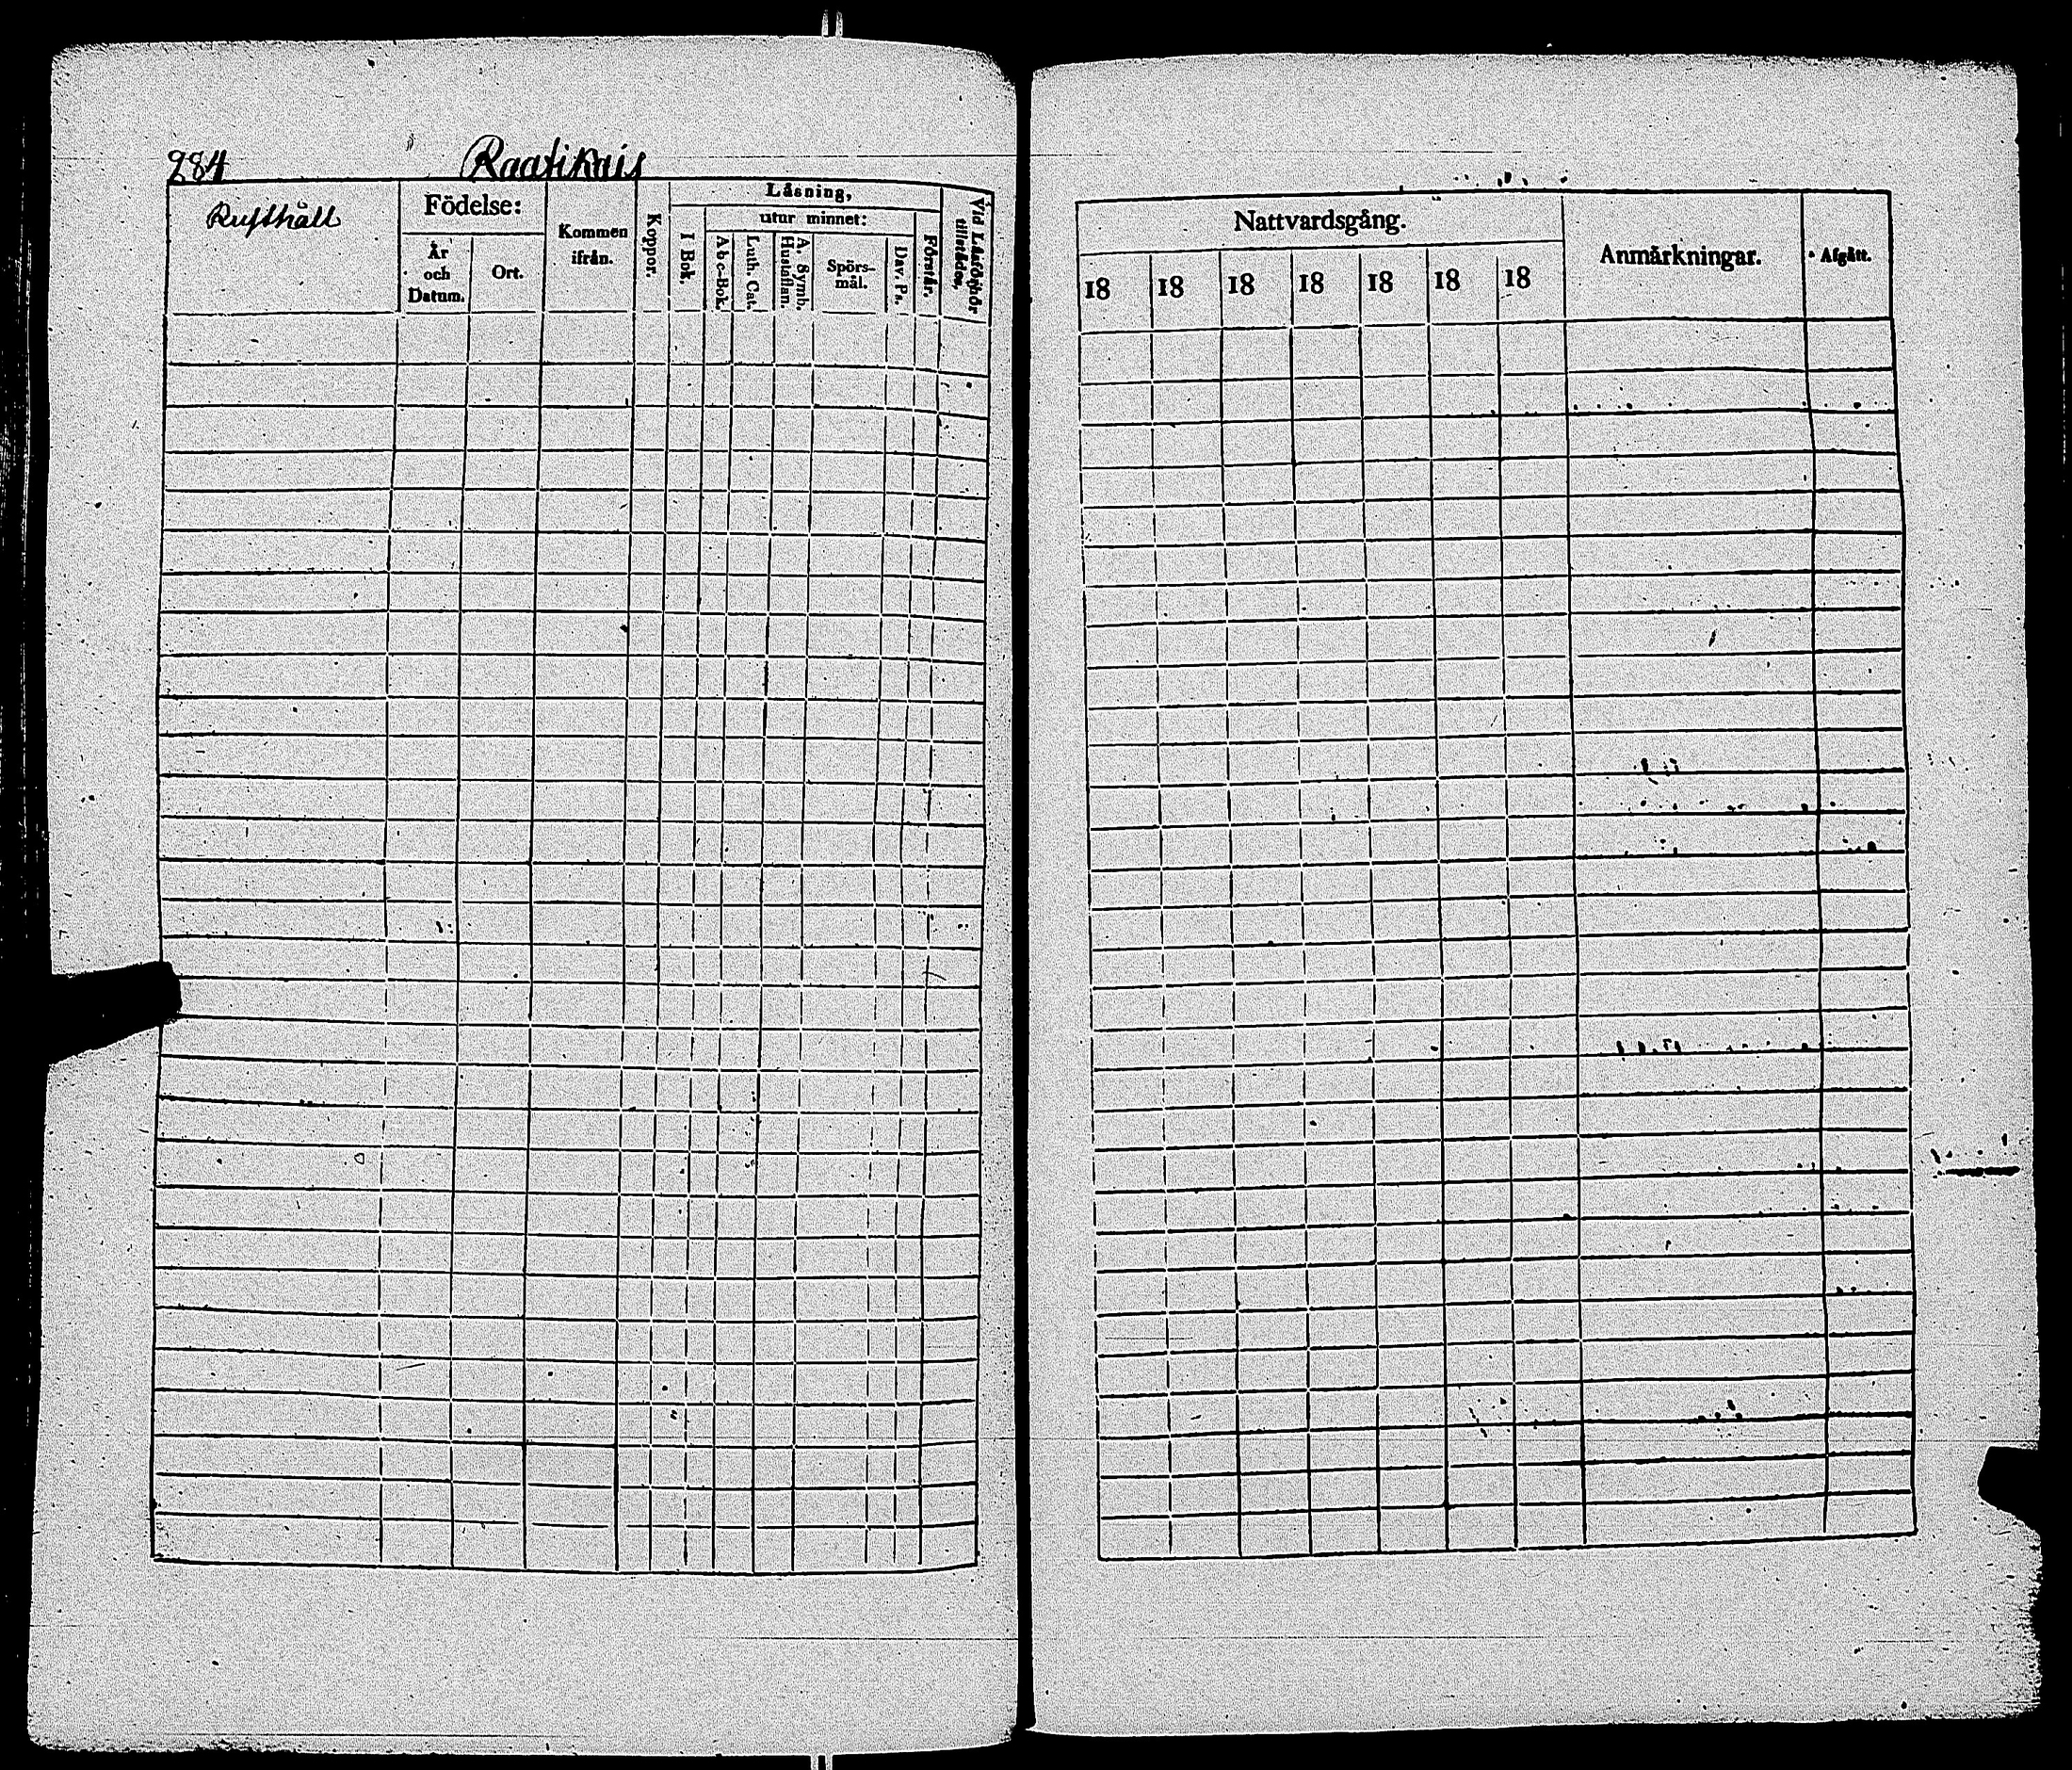 284 Raatikais
Rusthåll
Födelse:
År och Datum.
Ort.
Kommen ifrån.
Koppor.
Läsning,
I Bok.
utur minnet:
Abc-Bok.
Luth. Cat.
A. Symb. Hustaflan.
Spörs-mål.
Dav. Ps.
Förstår.
Vid Läsförhör tillstädes.
Nattvardsgång.
18 18 18 18 18 18 18
Anmärkningar.
Afgått.